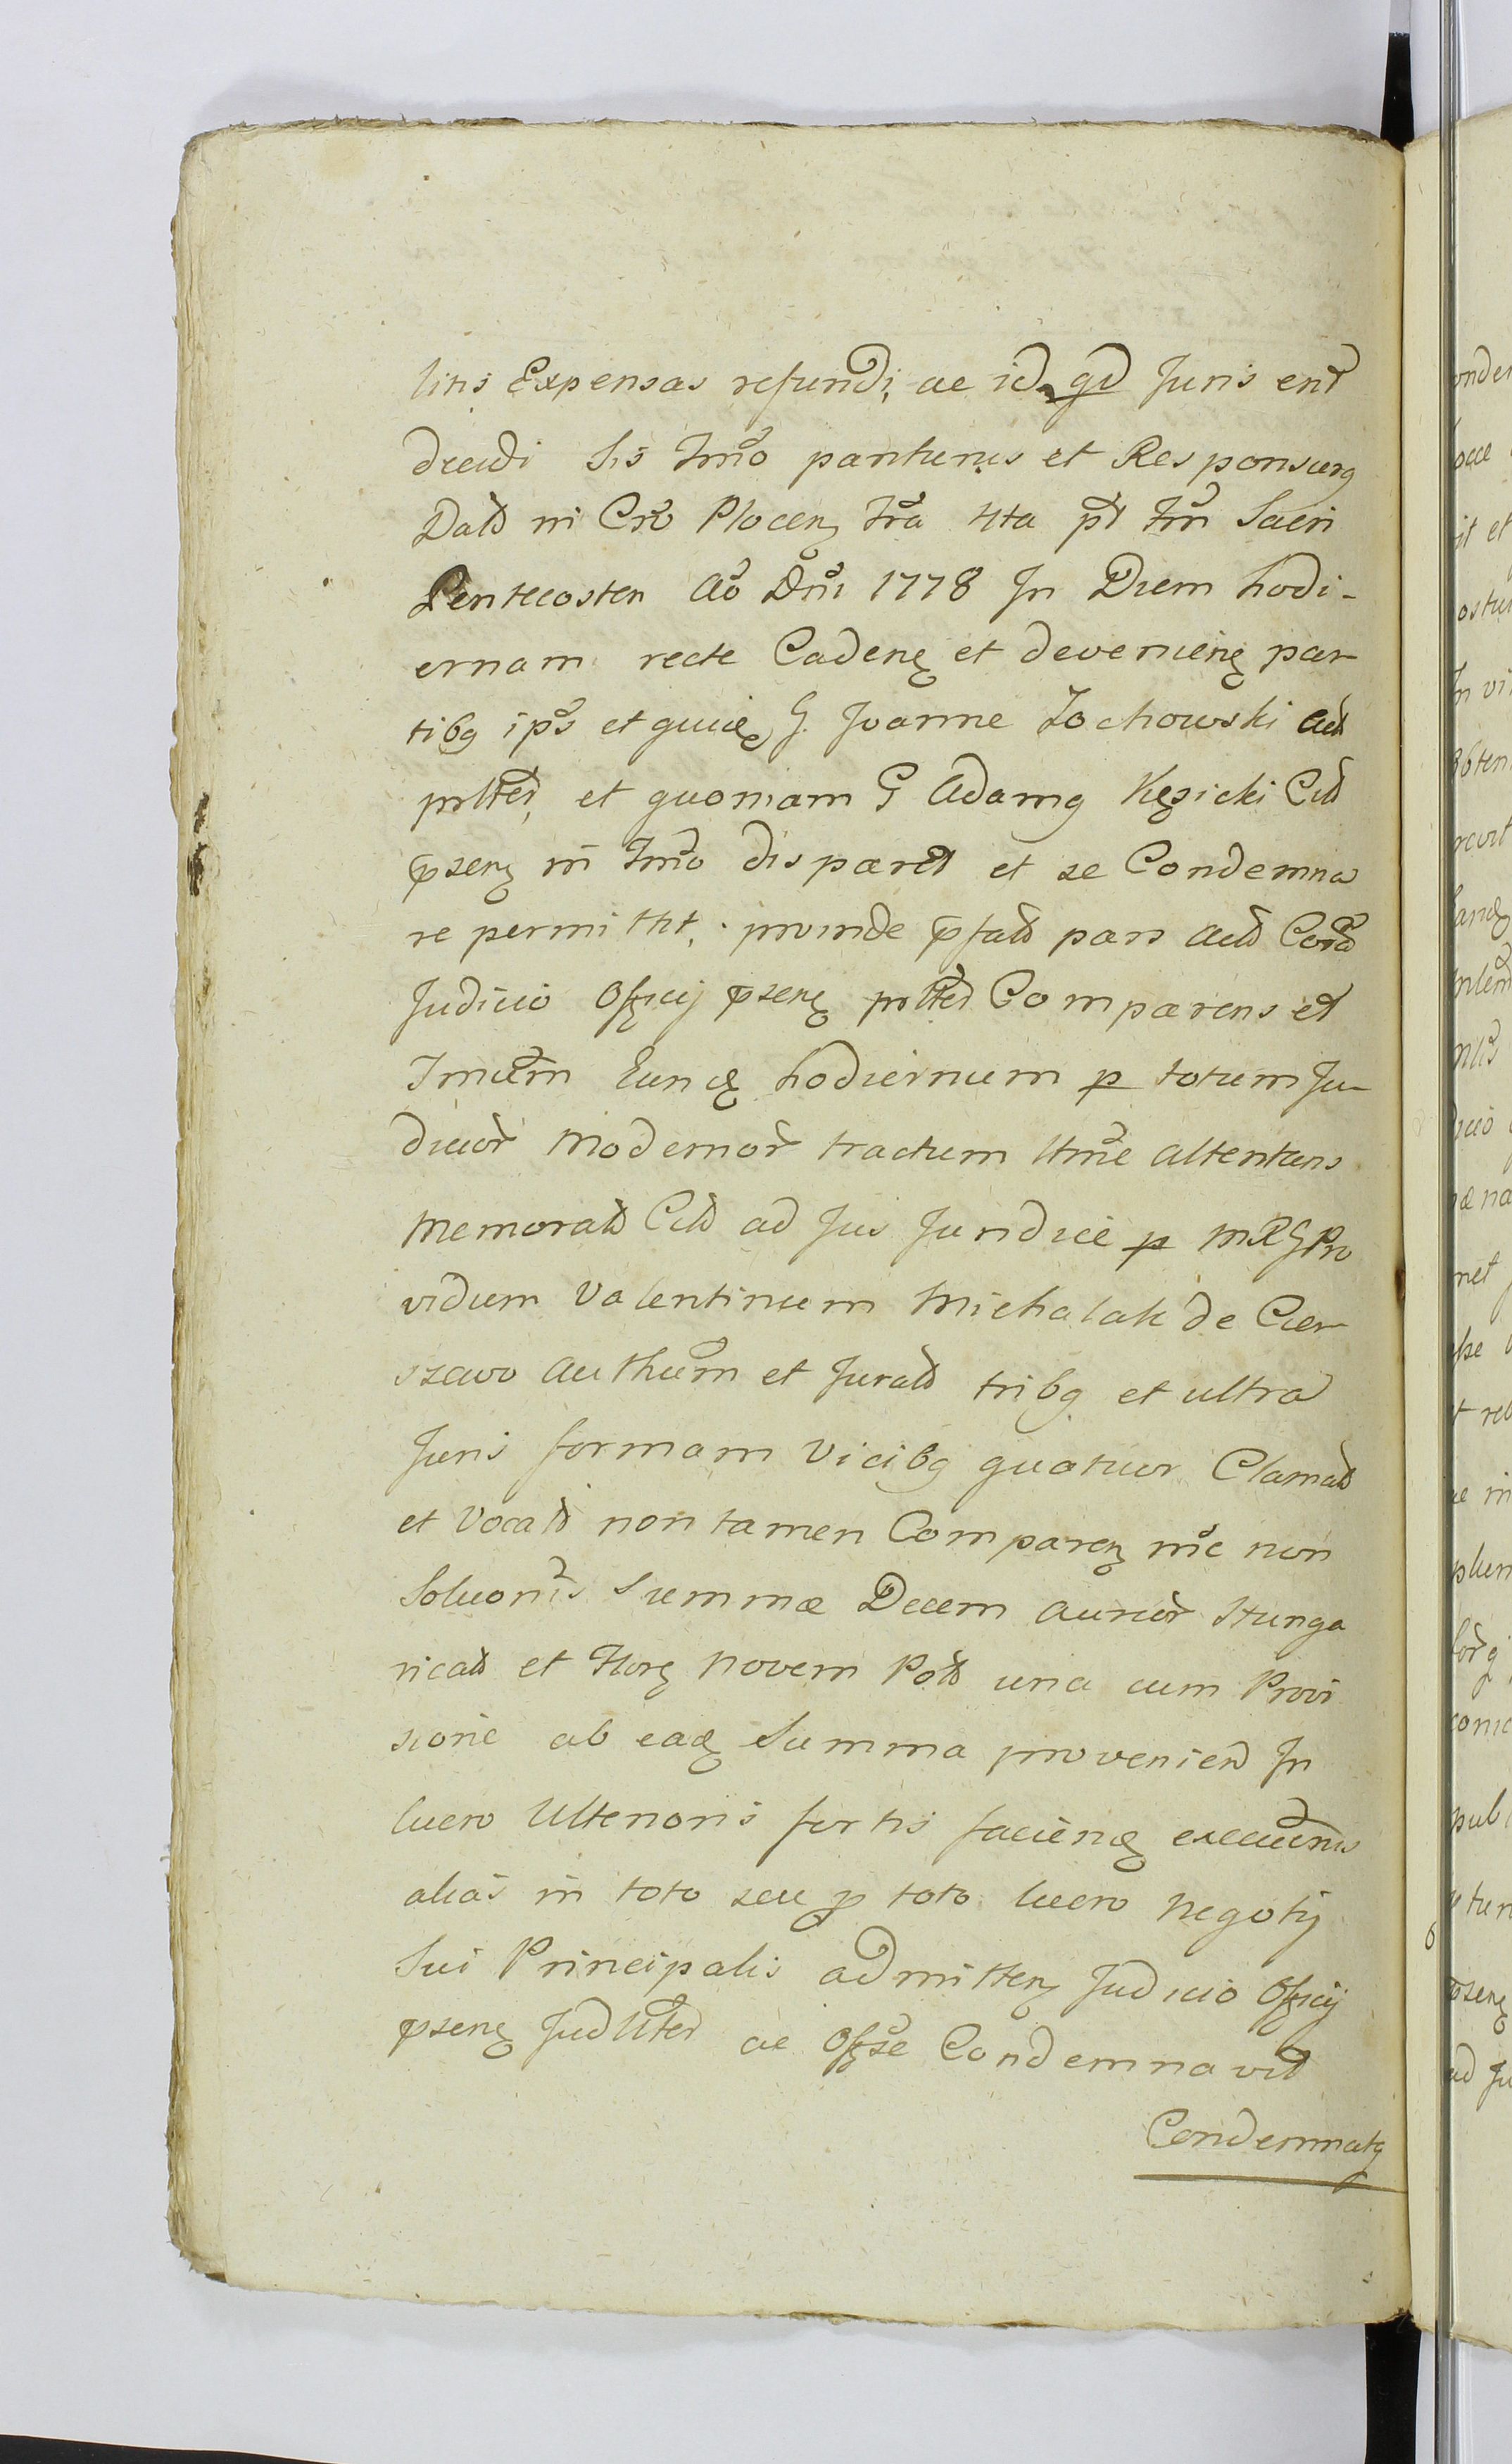 litis Expensas refundi, ac id qd Juris erit
decidi Sis Tmio pariturus et Responsurg
Datt in Cro Plocen fra 4ta pt fm Sacri
Pentecosten Ao Dni 1778 In Diem hodi-
ernam recte Caden et devenien par
tibg ips et quidē G. Joanne Żochowski Act
prltter, et quoniam G Adamg Kęsicki Citt
psen in Tmio disparet et se Condemna
re permittit, proinde pfatt pars Actt Corā
Judicio Officij psen prltter Comparens et
Tminum Eundē hodiernum p totum Ju-
dicior Modernor tractum ltme attentans
Memoratt Citt ad Jus Juridice p MRG Pro
vidum Valentinum Michalak de Cier
szewo Authum et Juratt tribg et ultra
Juris formam Vicibg quatuor Clamatt
et Vocatt non tamen Comparen nic non
Soluonis Summæ Decem aureor Hunga
ricatt et Flor Novem Poltt una cum Provi
sione ab eadē Summa provenien In
lucro Ulterioris fortis faciendē execuonis
alias in toto seu p toto lucro negotij
Sui Principalis admitten Judicio Officij
psen Judltter ac Offose Condemnavit
Condemnatg